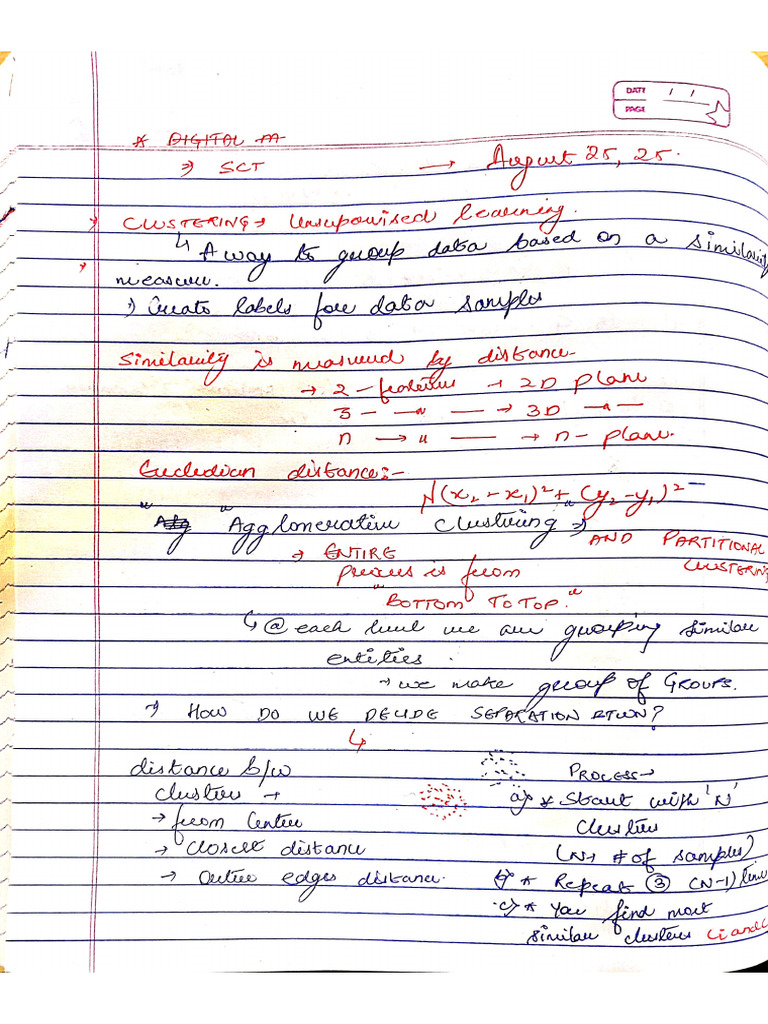 DATE / /
PAGE
* DIGITAL
⇒ SCT → August 25, 25.
CLUSTERING → Unsupervised learning.
↳ A way to group data based on a similarity
measure.
⇒ Create labels for data samples
Similarity is measured by distance
→ 2 - features → 2D plane
3 - " — → 3D - " -
n → " — → n - plane.
Eucledian distance:-
√(x₂ - x₁)² + (y₂ - y₁)²
" "Agglomerative Clustering" ⇒ AND PARTITIONAL
CLUSTERING
→ ENTIRE
process is from
"BOTTOM TO TOP."
↳ @ each level we are grouping similar
entities.
→ we make group of GROUPS.
⇒ HOW DO WE DECIDE SEPARATION BTWN?
↳
distance b/w
cluster →
→ from Center
→ Closest distance
→ Outer edges distance.
PROCESS →
a) * Start with 'N'
Cluster
(N → # of samples)
b) * Repeat ③ (N-1) time
c) * You find most
similar clusters